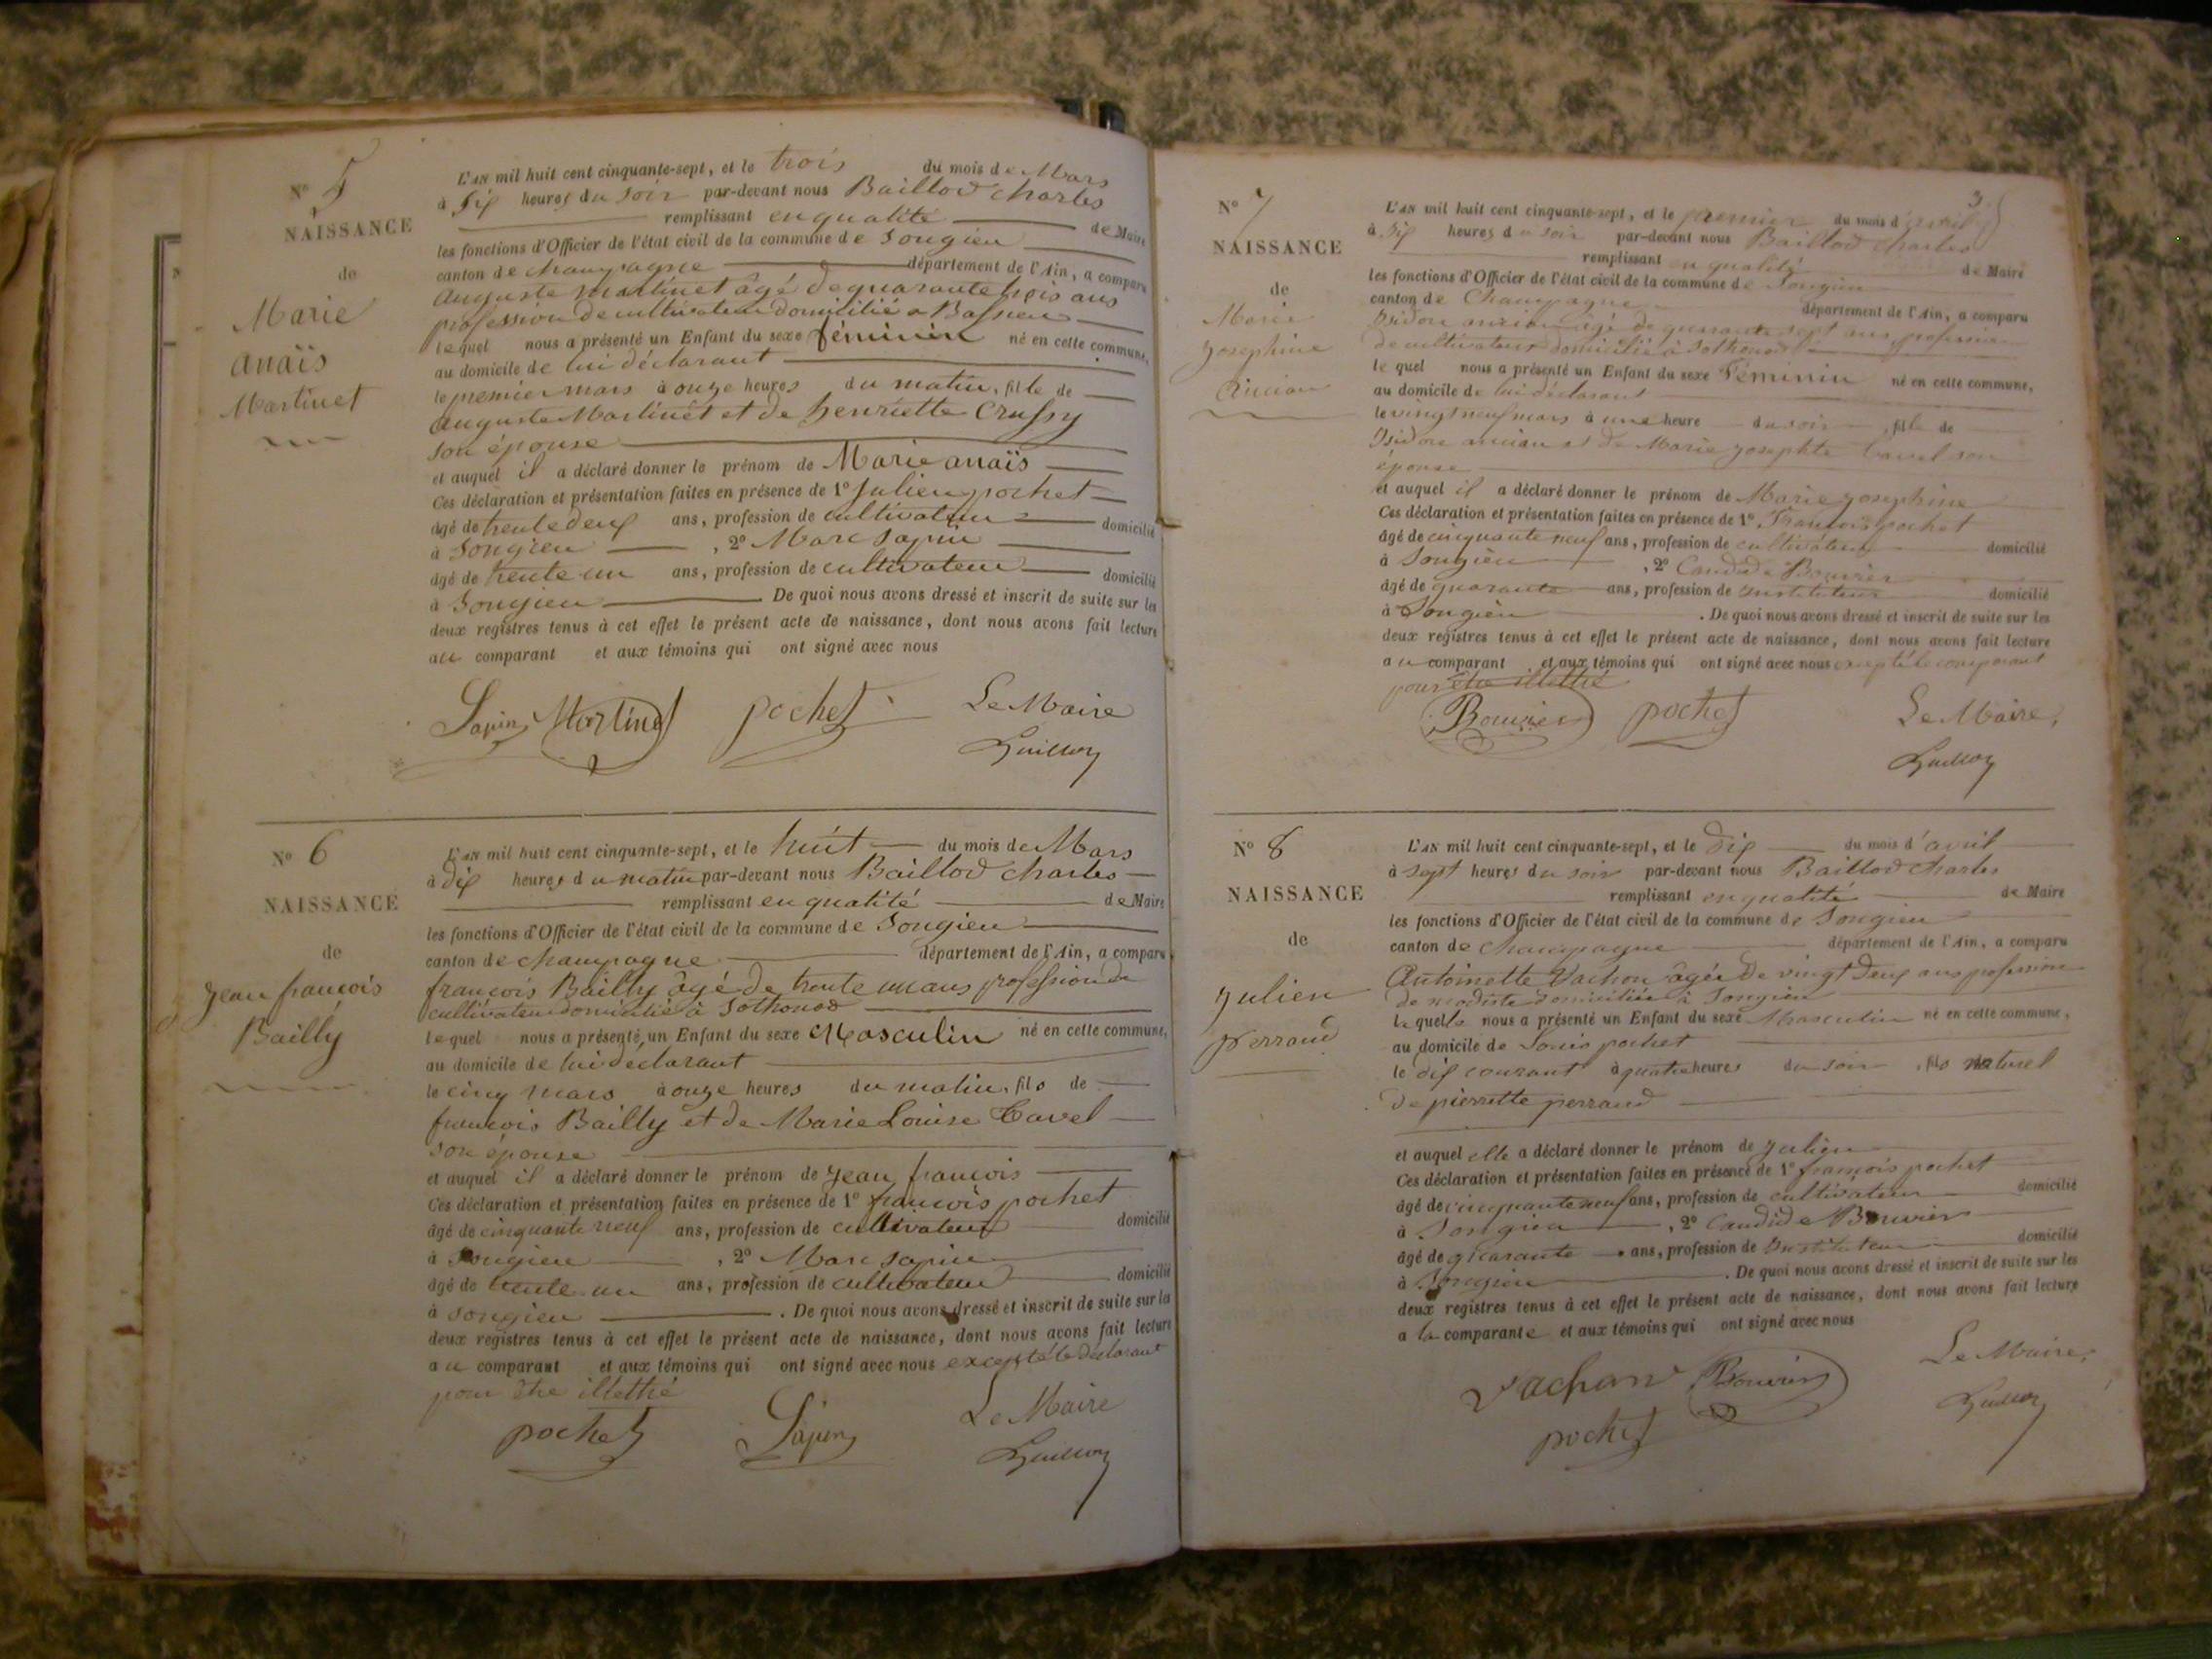 N° 5
NAISSANCE
de
Marie
Anaïs
Martinet
L'AN mil huit cent cinquante-sept, et le trois du mois de Mars
à Six heures du soir par-devant nous Baillod Charles
remplissant en qualité de Maire
les fonctions d'Officier de l'état civil de la commune de Songieu
canton de Champagne département de l'Ain, a comparu
Auguste Martinet âgé de quarante trois ans
profession de cultivateur domicilié a
lequel nous a présenté un Enfant du sexe féminin né en cette commune,
au domicile de lui déclarant
le premier mars à onze heures du matin, fille de
Auguste Martinet et de henriette Crussy
son épouse
et auquel il a déclaré donner le prénom de Marie anaïs
Ces déclaration et présentation faites en présence de 1° Julien pochet
âgé de trente deux ans, profession de cultivateur domicilié
à Songieu , 2° Marc Sapin
âgé de trente un ans, profession de cultivateur domicilié
à Songieu De quoi nous avons dressé et inscrit de suite sur les
deux registres tenus à cet effet le présent acte de naissance, dont nous avons fait lecture
au comparant et aux témoins qui ont signé avec nous
Sapin Martinet pochet Le Maire
N° 6
NAISSANCE
de
Jean françois
Bailly
L'AN mil huit cent cinquante-sept, et le huit du mois de Mars
à dix heures du matin par-devant nous Baillod Charles
remplissant en qualité de Maire
les fonctions d'Officier de l'état civil de la commune de Songieu
canton de champagne département de l'Ain, a comparu
françois Bailly âgé de trente un ans profession de
cultivateur domicilié à Sothonod
lequel nous a présenté un Enfant du sexe Masculin né en cette commune,
au domicile de lui déclarant
le cinq mars à onze heures du matin, fils de
françois Bailly et de Marie Louise Tavel
son épouse
et auquel il a déclaré donner le prénom de Jean françois
Ces déclaration et présentation faites en présence de 1° françois pochet
âgé de cinquante neuf ans, profession de cultivateur domicilié
à Songieu , 2° Marc Sapin
âgé de trente un ans, profession de cultivateur domicilié
à Songieu . De quoi nous avons dressé et inscrit de suite sur les
deux registres tenus à cet effet le présent acte de naissance, dont nous avons fait lecture
au comparant et aux témoins qui ont signé avec nous excepté le déclarant
pour être illettré
pochet Sapin Le Maire
N° 7
NAISSANCE
de
Marie
Josephine
Ancian
3
L'AN mil huit cent cinquante-sept, et le premier du mois d'avril
à six heures du soir par-devant nous Baillod Charles
remplissant en qualité de Maire
les fonctions d'Officier de l'état civil de la commune de Songieu
canton de Champagne département de l'Ain, a comparu
Isidore ancian âgé de quarante sept ans profession
de cultivateur domicilié à Sothonod
lequel nous a présenté un Enfant du sexe Féminin né en cette commune,
au domicile de lui déclarant
le vingt neuf mars à une heure du soir, fille de
Isidore ancian et de Marie josephte tavel son
épouse
et auquel il a déclaré donner le prénom de Marie josephine
Ces déclaration et présentation faites en présence de 1° François pochet
âgé de cinquante neuf ans, profession de cultivateur domicilié
à Songieu , 2° Candide Bouvier
âgé de quarante ans, profession de instituteur domicilié
à Songieu . De quoi nous avons dressé et inscrit de suite sur les
deux registres tenus à cet effet le présent acte de naissance, dont nous avons fait lecture
au comparant et aux témoins qui ont signé avec nous excepté le comparant
pour être illettré
Bouvier pochet Le Maire,
N° 8
NAISSANCE
de
Julien
perraud
L'AN mil huit cent cinquante-sept, et le dix du mois d'avril
à sept heures du soir par-devant nous Baillod Charles
remplissant en qualité de Maire
les fonctions d'Officier de l'état civil de la commune de Songieu
canton de champagne département de l'Ain, a comparu
Antoinette Vachon âgée de vingt deux ans profession
de modiste domiciliée à Songieu
laquelle nous a présenté un Enfant du sexe Masculin né en cette commune,
au domicile de Louis pochet
le dix courant à quatre heures du soir, fils naturel
de pierrette perraud
et auquel elle a déclaré donner le prénom de Julien
Ces déclaration et présentation faites en présence de 1° françois pochet
âgé de cinquante neuf ans, profession de cultivateur domicilié
à Songieu , 2° Candide Bouvier
âgé de quarante ans, profession de Instituteur domicilié
à Songieu . De quoi nous avons dressé et inscrit de suite sur les
deux registres tenus à cet effet le présent acte de naissance, dont nous avons fait lecture
a la comparante et aux témoins qui ont signé avec nous
Le Maire,
Vachon Bouvier
pochet